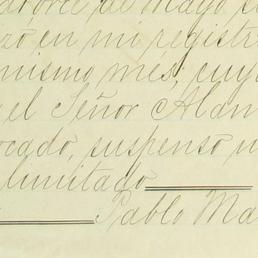 catorce de Mayo
zó en mi registr
mismo més, cuy
el Señor Alam
ocado, suspenso
limitado
Pablo Ma